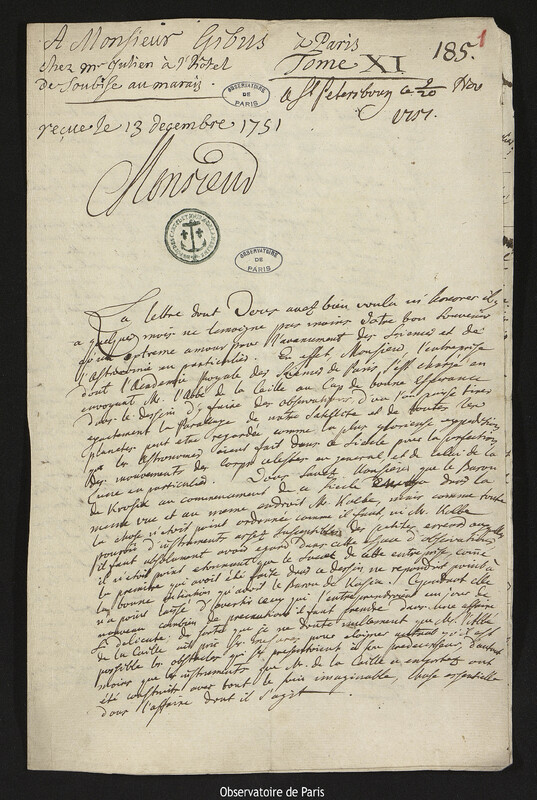 A Monsieur Gibus à Paris
chez Mr. Julien à l'hôtel
De Soubise au marais
Tome XI
185.
1
OBSERVATOIRE
DE
PARIS
A St Petersbourg ce 9/20 Nov
1751.
reçue le 13 decembre 1751
Monsieur
OBSERVATOIRE
DE
PARIS
La lettre dont Vous avez bien voulu m'honorer il y
a quelques mois ne temoigne pas moins Votre bon souvenir
qu'un extreme amour pour l'avancement des Sciences et de
l'Astronomie en particulier. En effet, Monsieur, l'entreprise
dont l'Academie Royale des Sciences de Paris s'est chargé en
envoyant Mr. l'Abbé de la Caille au Cap de bonne Esperance
dans le dessein d'y faire des observations d'où l'on puisse tirer
exactement la Parallaxe de notre Satellite et de toutes les
planetes peut etre regardée comme la plus glorieuse expedition
que les Astronomes aient fait dans ce Siecle pour la perfection
des mouvements des Corps celestes en general et de celui de la
Lune en particulier. Vous savez Monsieur que le Baron
de Krosik au commencement de ce Siecle envoya dans la
meme vue et au meme endroit Mr. Kolbe, mais comme toute
la chose n'etoit point ordonnée comme il faut, ni Mr. Kolbe
pourvu d'instruments assez susceptibles des petites erreurs auxquelles
il faut absolument avoir egard dans cette espece d'observations
il n'etoit point etonnant que le succes de cette entreprise, comme
la premiere qui avoit été faite dans ce dessein ne repondit point à
la bonne intention qu'avoit le Baron de Krosik. Cependant elle
n'a point laissé d'avertir ceux qui l'entreprendroient un jour de
nouveau combien de precautions il faut prendre dans une affaire
si delicate: de sorte que je ne doute nullement que Mr. l'Abbé
de la Caille n'ait pris ses mesures pour eloigner autant qu'il est
possible les obstacles qui se presentoient à son predecesseur, d'autant
moins que les instruments que Mr. de la Caille a emportés ont
été construits avec tout le soin imaginable, chose essentielle
dans l'affaire dont il s'agit
Observatoire de Paris